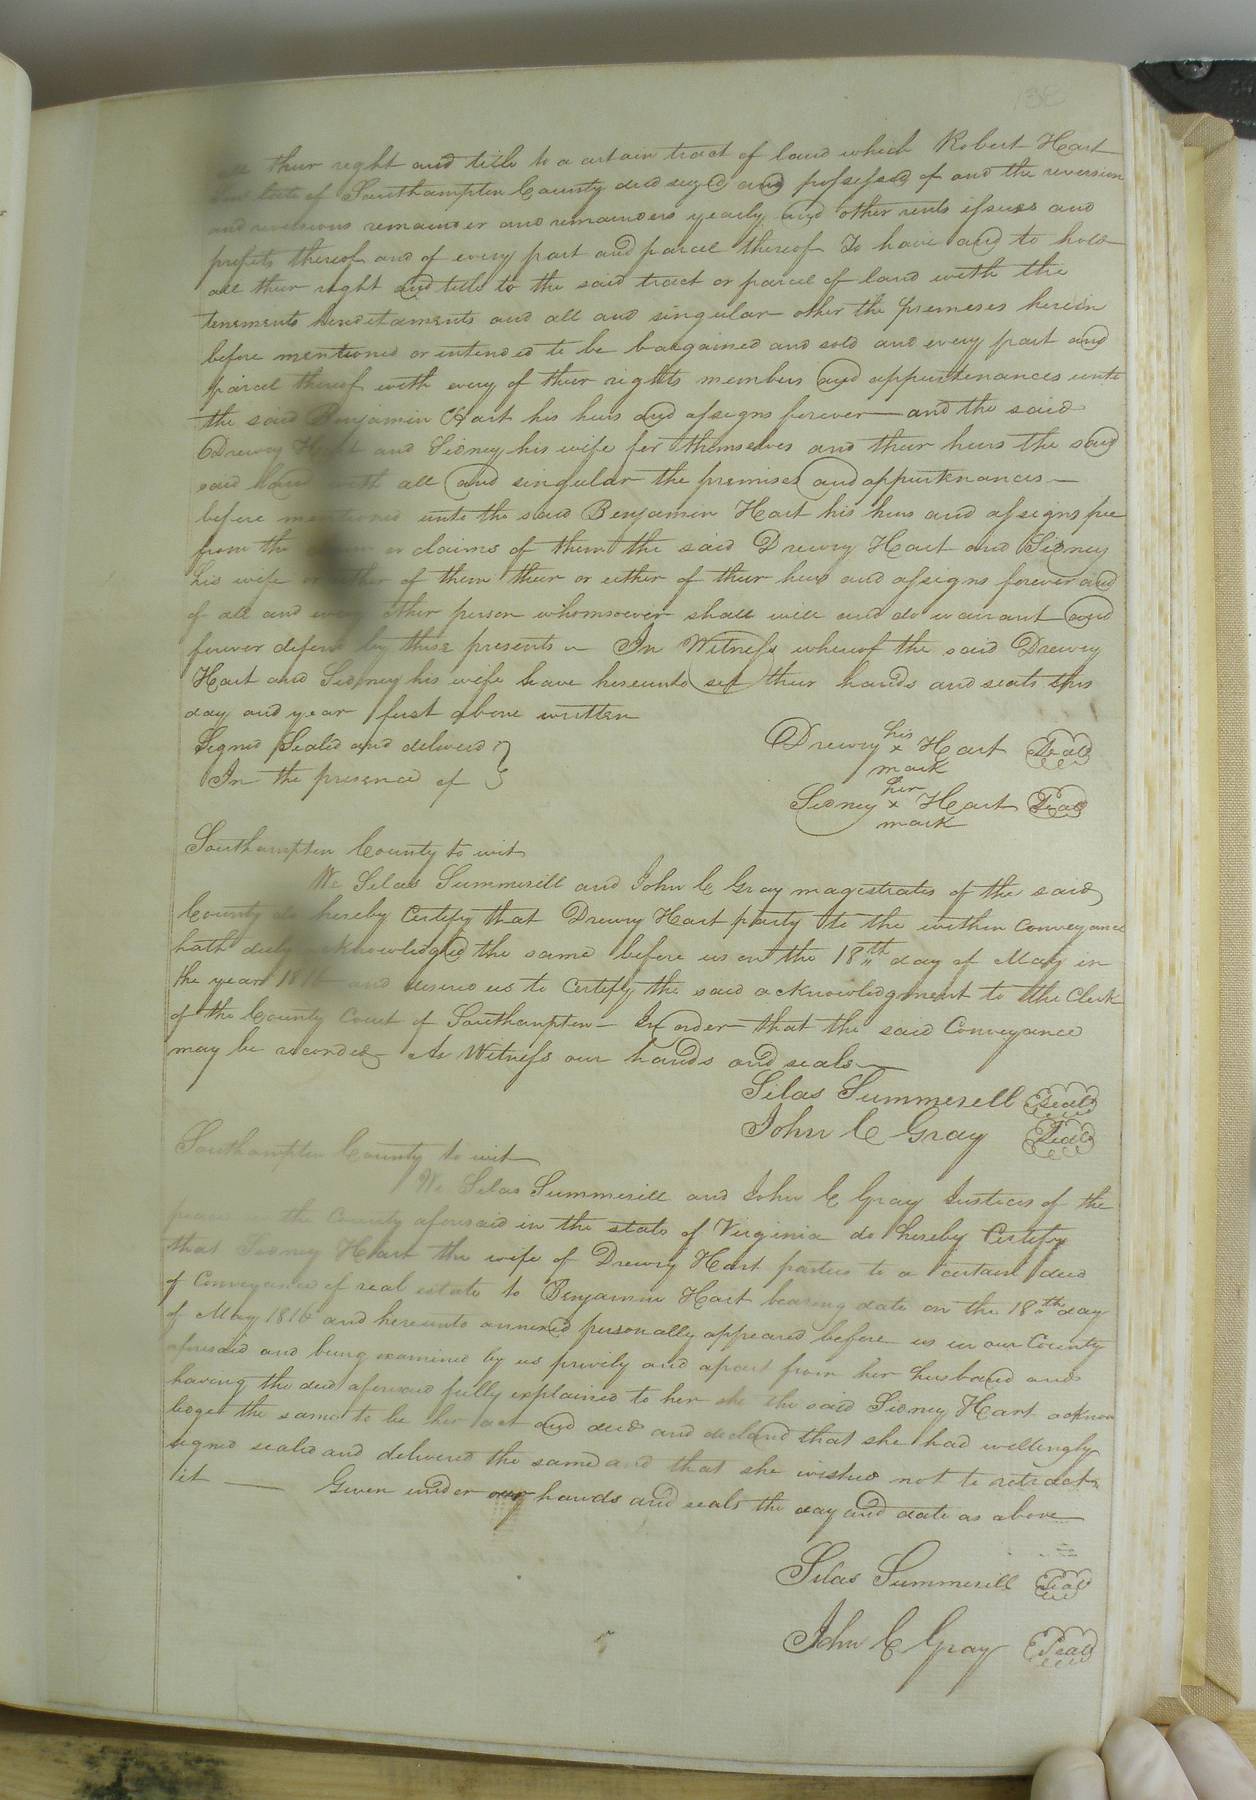 138
all their right and title to a certain tract of land which Robert Hart
late of Southampton County decd seized and possessed of and the reversion
and revisions remainder and remainders yearly and other rents issues and
profits thereof and of every part and parcel thereof To have and to hold
all their right and title to the said tract or parcel of land with the
tenements hereditaments and all and singular other the premeses herein
before mentioned or intended to be bargained and sold and every part and
parcel thereof with every of their rights members and appurtenances unto
the said Benjamin Hart his heirs and assigns forever — and the said
Drewry Hart and Sidney his wife for themselves and their heirs the said
said land with all and singular the premises and appurtenances —
before mentioned unto the said Benjamin Hart his heirs and assigns free
from the claim or claims of them the said Drewry Hart and Sidney
his wife or either of them their or either of their heirs and assigns forever and
of all and every other person whomsoever shall will and do warrant and
forever defend by these presents — In Witness whereof the said Drewry
Hart and Sidney his wife have hereunto set their hands and seals this
day and year first above written
Signed Sealed and delivered }
In the presence of
his
Drewry x Hart Seal
mark
her
Sidney x Hart Seal
mark
Southampton County to wit
We Silas Summerill and John C Gray magistrates of the said
County do hereby Certify that Drewry Hart party to the within Conveyance
hath duly acknowledged the same before us on the 18th day of May in
the year 1816 and desired us to Certify the said acknowledgment to the Clerk
of the County Court of Southampton — In order that the said Conveyance
may be recorded — As Witness our hands and seals —
Silas Summerell Seal
John C Gray Seal
Southampton County to wit
We Silas Summerill and John C Gray Justices of the
peace in the County aforesaid in the state of Virginia do hereby Certify
that Sidney Hart the wife of Drewry Hart parties to a certain deed
of Conveyance of real estate to Benjamin Hart bearing date on the 18th day
of May 1816 and hereunto annexed personally appeared before us in our County
aforesaid and being examined by us privily and apart from her husband and
having the deed aforesaid fully explained to her she the said Sidney Hart acknow
ledged the same to be her act and deed and declared that she had willingly
signed sealed and delivered the same and that she wished not to retract
it — Given under our hands and seals the day and date as above
Silas Summerill Seal
John C Gray Seal